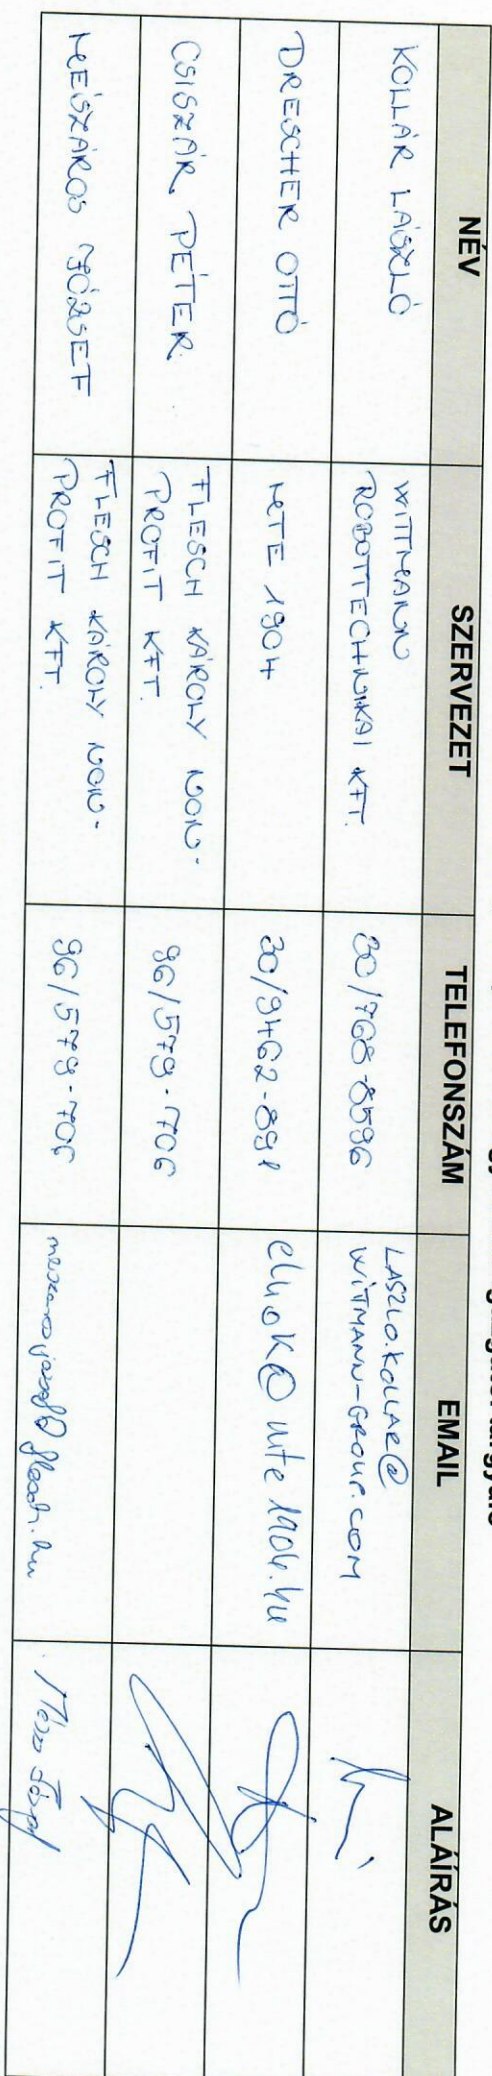 NÉV SZERVEZET TELEFONSZÁM EMAIL ALÁÍRÁS
KOLLÁR LÁSZLÓ
WITTMANN
ROBOTTECHNIKAI KFT.
30/768-8596
LASZLO.KOLLAR@
WITTMANN-GROUP.COM
DRESCHER OTTÓ
MTE 1904
30/9462-891
elnok@mte1904.hu
CSISZÁR PÉTER
FLESCH KÁROLY NON-
PROFIT KFT.
96/579-706
MÉSZÁROS JÓZSEF
FLESCH KÁROLY NON-
PROFIT KFT.
96/579-706
meszarosjozsef@flesch.hu